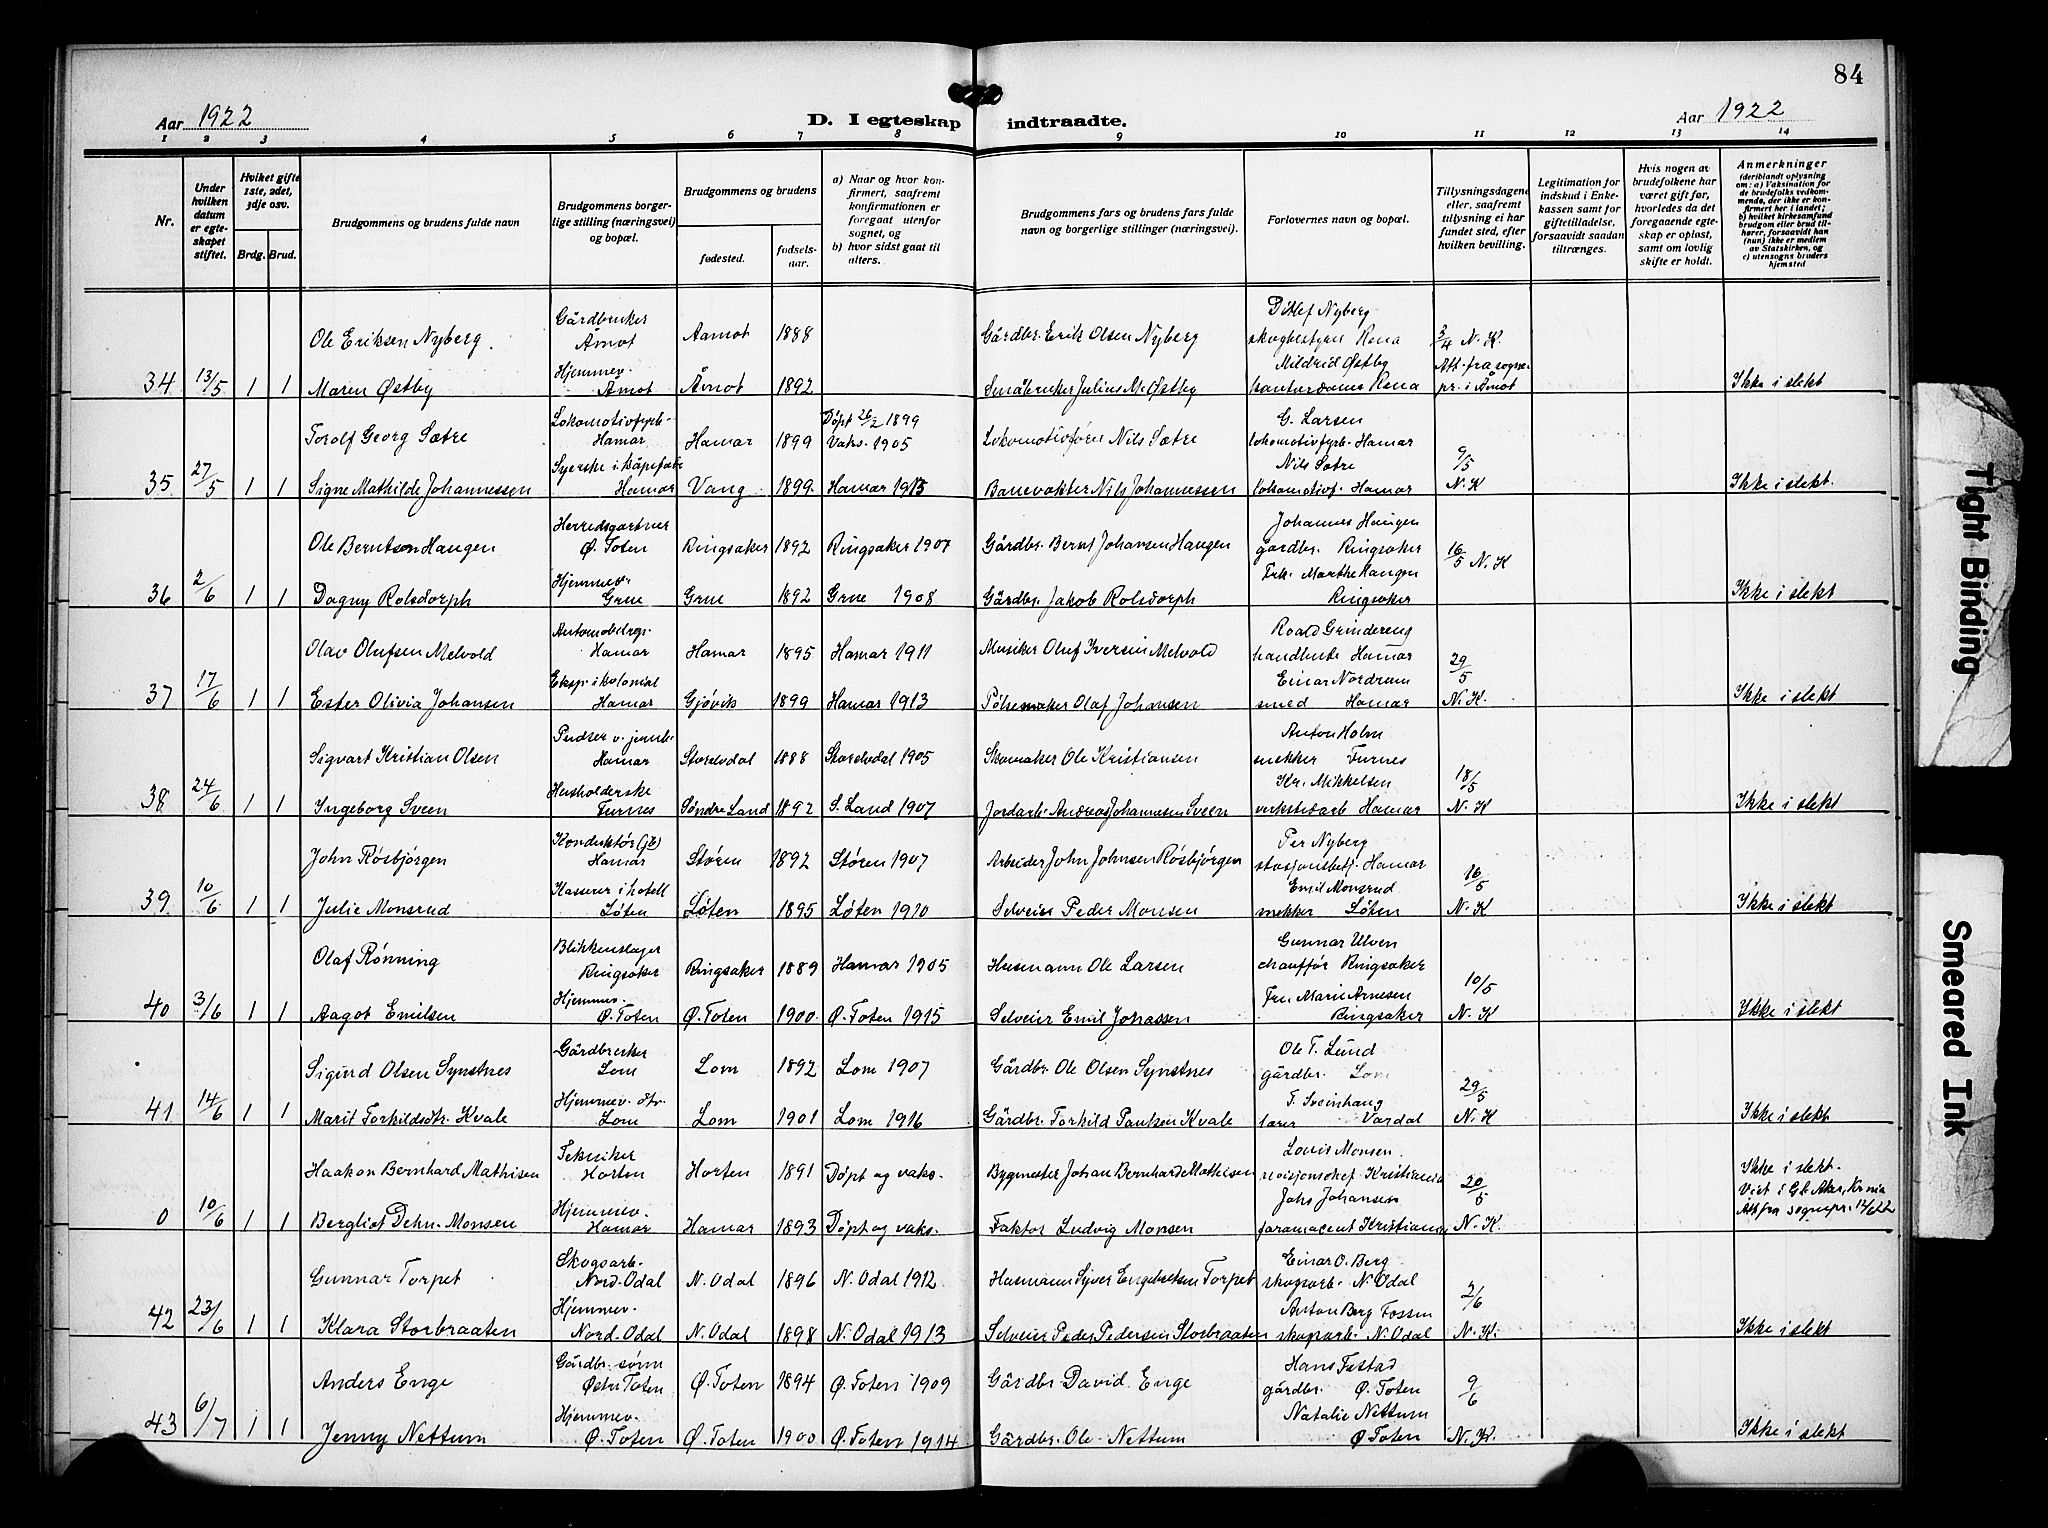 84
Aar 1922
D. I egteskap indtraadte.
Aar 1922
1 2 3 4 5 6 7 8 9 10 11 12 13 14
Nr.
Under hvilken datum er egteskapet stiftet.
Hvilket gifte 1ste, 2det, 3dje osv.
Brdg. Brud.
Brudgommens og brudens fulde navn
Brudgommens borgerlige stilling (næringsvei) og bopæl.
Brudgommens og brudens
fødested.
fødselsaar.
a) Naar og hvor konfirmert, saafremt konfirmationen er foregaat utenfor sognet, og
b) hvor sidst gaat til alters.
Brudgommens fars og brudens fars fulde navn og borgerlige stillinger (næringsvei).
Forlovernes navn og bopæl.
Tillysningsdagene eller, saafremt tillysning ei har fundet sted, efter hvilken bevilling.
Legitimation for indskud i Enkekassen samt for giftetilladelse, forsaavidt saadan tiltrænges.
Hvis nogen av brudefolkene har været gift før, hvorledes da det foregaaende egteskap er opløst, samt om lovlig skifte er holdt.
Anmerkninger (deriblandt oplysning om: a) Vaksination for de brudefolks vedkommende, der ikke er konfirmert her i landet; b) hvilket kirkesamfund brudgom eller brud tilhører, forsaavidt han (hun) ikke er medlem av Statskirken, og c) utensogns bruders hjemsted
Ole Eriksen Nyberg. Gårdbruker Åmot Aamot 1888 Gårdbr. Erik Olsen Nyberg Ditlef Nyberg skogbestyrer Rena 3/4 N. K.
34 13/5 1 1 Maren Østby Hjemmev. Åmot Åmot 1892 Småbruker Julius M. Østby Mildrid Østby kontordame Rena Att. fra sognepr. i Åmot Ikke i slekt
Torolf Georg Sætre Lokomotivfyrb. Hamar Hamar 1899 Døpt 26/2 1899 Vaks. 1905 Lokomotivfører Nils Sætre G. Larsen lokomotivfyrb. Hamar 9/5
35 27/5 1 1 Signe Mathilde Johannessen Syerske i kåpefabr. Hamar Vang 1899 Hamar 1915 Banevokter Nils Johannessen Nils Sætre lokomotivf. Hamar N. K Ikke i slekt.
Ole Berntsen Haugen Herredsgartner Ø. Toten Ringsaker 1892 Ringsaker 1907 Gårdbr. Bernt Johansen Haugen Johannes Haugen gårdbr. Ringsaker 16/5 N. K
36 2/6 1 1 Dagny Rolsdorph Hjemmev. Grue Grue 1892 Grue 1908 Gårdbr. Jakob Rolsdorph Frk. Marthe Haugen Ringsaker Ikke i slekt
Olav Olufsen Melvold Hamar Hamar 1895 Hamar 1911 Musiker Oluf Iversen Melvold Roald Grindereng handlende Hamar 29/5
37 17/6 1 1 Ester Olivia Johansen Eksp. i kolonial Hamar Gjøvik 1899 Hamar 1913 Pølsemaker Olaf Johansen Einar Nordrum smed Hamar N. K. Ikke i slekt
Sigvart Kristian Olsen Pudser v. jernb. Hamar Storelvdal 1888 Storelvdal 1905 Skomaker Ole Kristiansen Anton Holm snekker Furnes 18/5
38 24/6 1 1 Ingeborg Sveen Husholderske Furnes Søndre Land 1892 S. Land 1907 Jordarb. Andreas Johannesen Sveen Kr. Mikkelsen verkstedarb Hamar N. K Ikke i slekt
John Røsbjørgen Konduktør (jb) Hamar Støren 1892 Støren 1907 Arbeider John Johnsen Røsbjørgen Per Nyberg stasjonsbetj. Hamar 16/5
39 10/6 1 1 Julie Monsrud Kasserer i hotell Løten Løten 1895 Løten 1910 Selveier Peder Monsen Emil Monsrud snekker Løten N. K Ikke i slekt
Olaf Rønning Blikkenslager Ringsaker Ringsaker 1889 Hamar 1905 Husmann Ole Larsen Gunnar Ulven chauffør Ringsaker 10/5
40 3/6 1 1 Aagot Emilsen Hjemmev. Ø. Toten Ø. Toten 1900 Ø. Toten 1915 Selveier Emil Johassen Fru Marie Arnesen Ringsaker N. K Ikke i slekt
Sigurd Olsen Synstnes Gårdbruker Lom Lom 1892 Lom 1907 Gårdbr. Ole Olsen Synstnes Ole T. Lund gårdbr. Lom 29/5
41 14/6 1 1 Marit Torkildsdtr. Kvale Hjemmev. dtr. Lom Lom 1901 Lom 1916 Gårdbr. Torkild Paulsen Kvale T. Sveinhaug lærer Vardal N. K Ikke i slekt
Haakon Bernhard Mathisen Tekniker Horten Horten 1891 Døpt og vaks. Bygmester Johan Bernhard Mathisen Louis Monsen. revisjonschef Kristiania 20/5 Ikke i slekt.
0 10/6 1 1 Bergliot Dehn-Monsen Hjemmev. Hamar Hamar 1893 Døpt og vaks. Faktor Ludvig Monsen Johs Johansen farmaceut Kristiania N. K. Viet i Gl. Aker, Kr.nia Att fra sognepr. 12/6 22
Gunnar Torpet Skogsarb. Nord-Odal N. Odal 1896 N. Odal 1912 Husmann Syver Engebretsen Torpet Einar O. Berg skogsarb. N. Odal 2/6
42 23/6 1 1 Klara Storbraaten Hjemmev. Nord. Odal N. Odal 1898 N. Odal 1913 Selveier Peder Pedersen Storbraaten Anton Berg Fossen skogsarb. N. Odal N. K. Ikke i slekt
Anders Enge Gårdbr. sønn Østre Toten Ø. Toten 1894 Ø. Toten 1909 Gårdbr. David Enge Hans Festad gårdbr. Ø. Toten 9/6
43 6/7 1 1 Jenny Nettum Hjemmev. Ø. Toten Ø. Toten 1900 Ø. Toten 1914 Gårdbr. Ole Nettum Natalie Nettum Ø Toten N. K. Ikke i slekt
Tight Binding
Smeared Ink